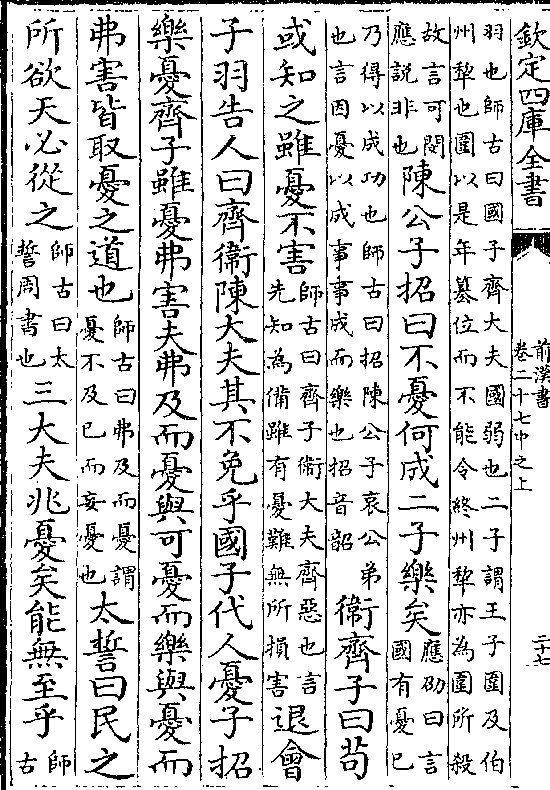 欽定四庫全書
前漢書
卷二十七中之上
二十七
羽也師古曰國子齊大夫國弱也二子謂王子圍及伯
州犂也圍以是年篡位而不能令終州犂亦為圍所殺
故言可閔
應說非也
陳公子招曰不憂何成二子樂矣
應劭曰言
國有憂已
乃得以成功也師古曰招陳公子哀公弟
也言因憂以成事事成而樂也招音韶
衛齊子曰苟
或知之雖憂不害
師古曰齊子衛大夫齊惡也言
先知為備雖有憂難無所損害
退會
子羽告人曰齊衛陳大夫其不免乎國子代人憂子招
樂憂齊子雖憂弗害夫弗及而憂與可憂而樂與憂而
弗害皆取憂之道也
師古曰弗及而憂謂
憂不及已而妄憂也
太誓曰民之
所欲天必從之
師古曰太
誓周書也
三大夫兆憂矣能無至乎
師
古